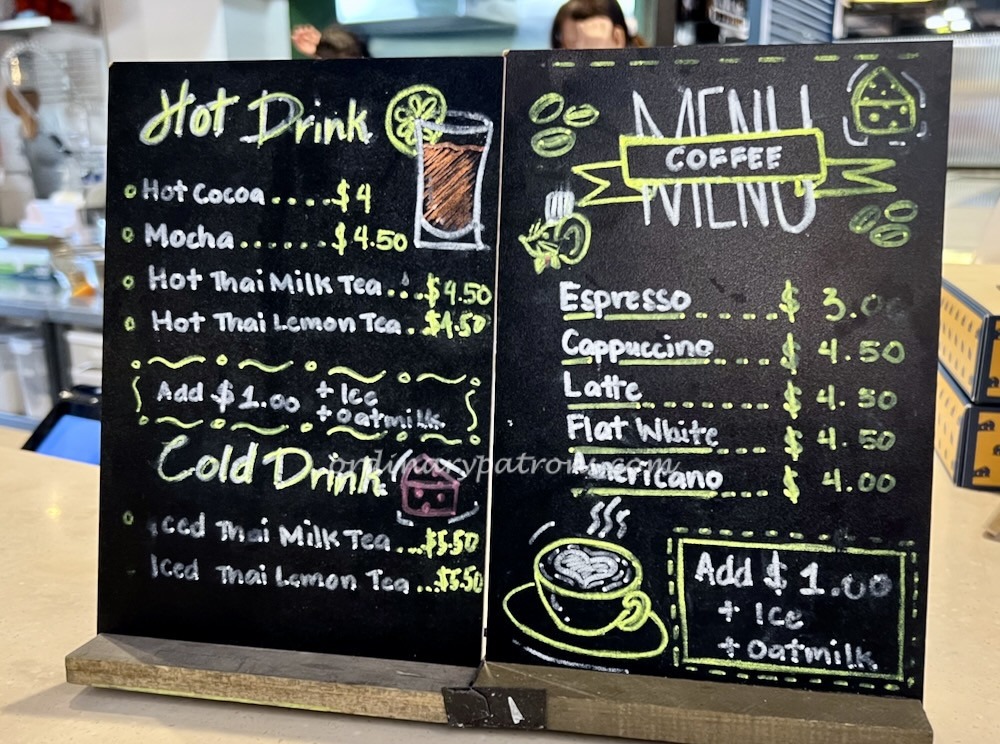 Hot Drink
Hot Cocoa.....$4
Mocha......$4.50
Hot Thai Milk Tea...$4.50
Hot Thai Lemon Tea..$4.50
Add $1.00 + Ice
+ oatmilk
Cold Drink
Iced Thai Milk Tea...$5.50
Iced Thai Lemon Tea...$5.50
MENU
COFFEE
MENU
Espresso $ 3.00
Cappuccino $ 4.50
Latte $ 4.50
Flat White $ 4.50
Americano $ 4.00
Add $1.00
+ Ice
+ Oatmilk
ordinarypatrons.com